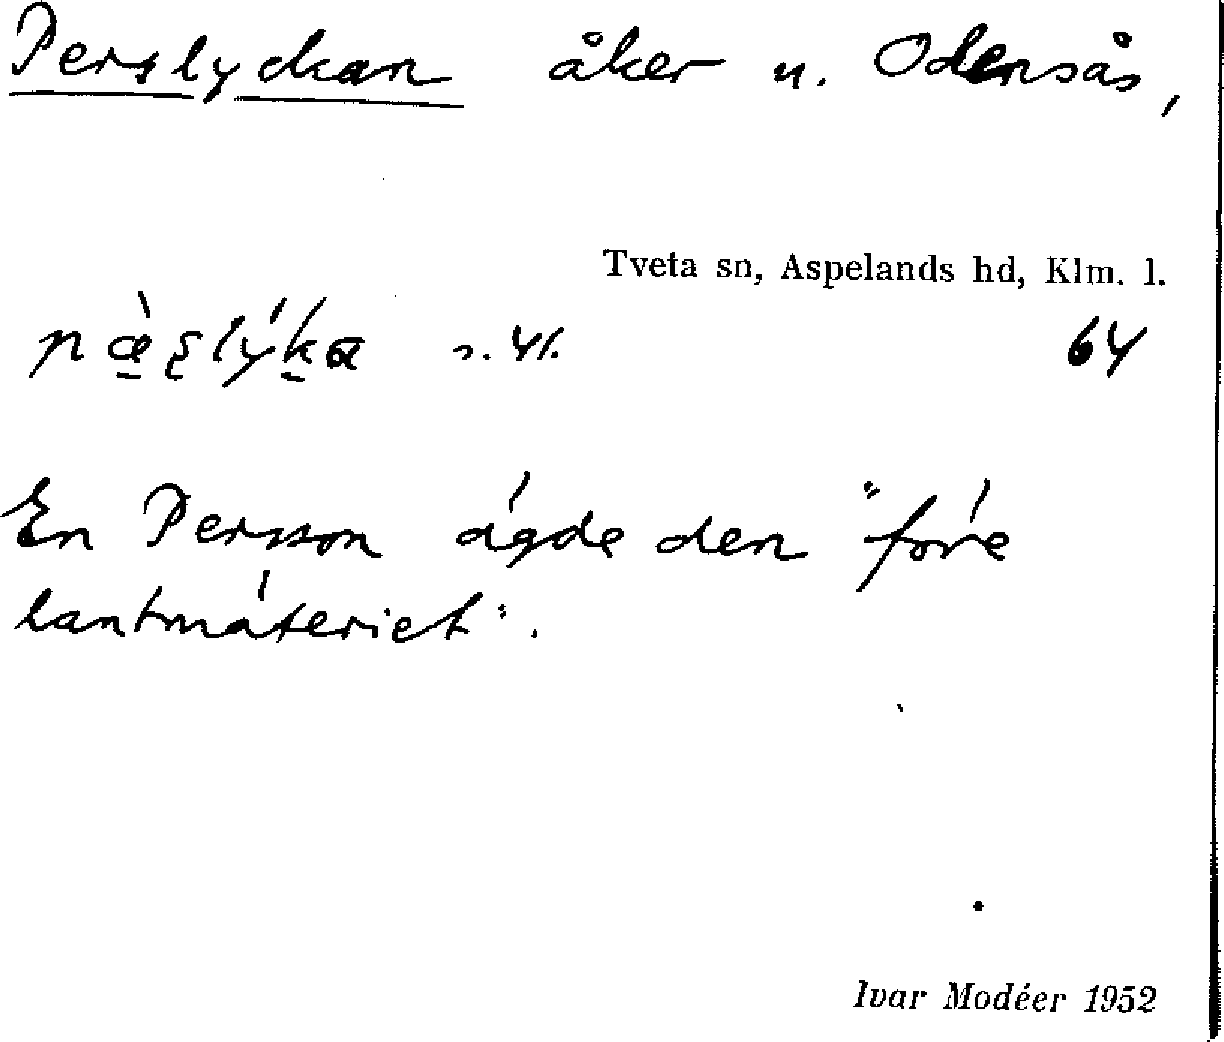 Perslyckan åker u. Odensås,
Tveta sn, Aspelands hd, Klm. l.
pæ̀ʂlýka s. 41. 64
En Persson ägde den "före
lantmäteriet".
Ivar Modéer 1952